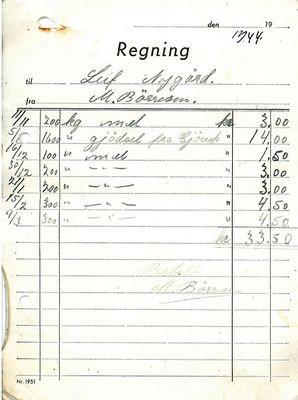 den 19
1944
Regning
til Leif Nygård.
fra M. Börresen.
11/11 200 kg mel kr 3.00
5/5 1600 " gjödsel fra Gjövik " 14.00
16/12 100 " mel " 1.50
30/12 200 " — " — " 3.00
2/1 200 " — " — " 3.00
15/2 300 " — " — " 4.50
9/3 300 " — " — " 4.50
kr 33.50
Betalt
M. Börresen
Nr. 1951